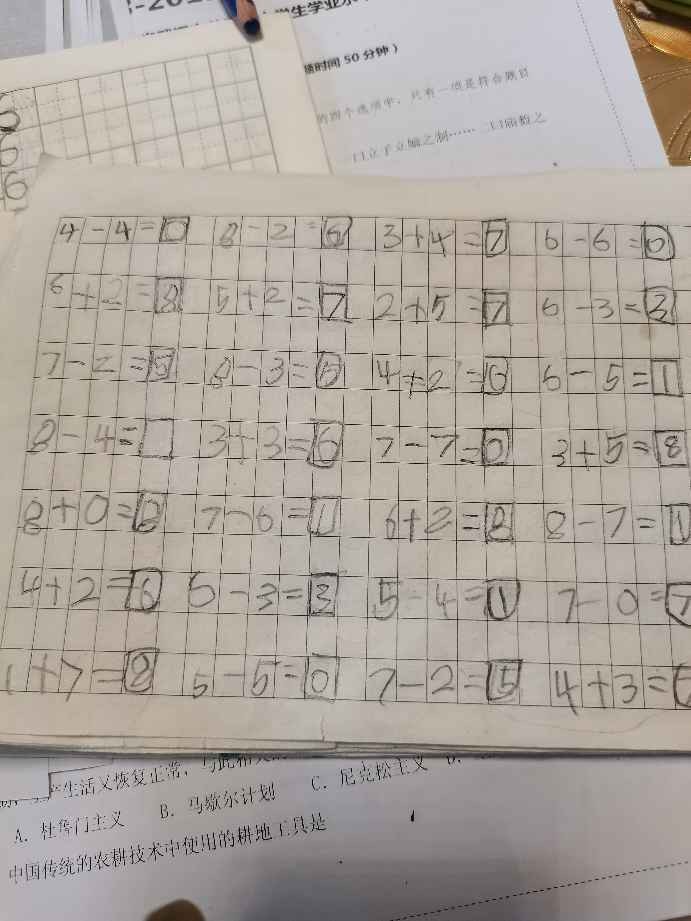 时间 50 分钟）
的四个选项中，只有一项是符合题目
6
6
4-4=0 8-2=6 3+4=7 6-6=0
6+2=8 5+2=7 2+5=7 6-3=3
7-2=5 8-3=5 4+2=6 6-5=1
8-4= 3+3=6 7-7=0 3+5=8
8+0=8 7-6=1 6+2=8 8-7=1
4+2=6 6-3=3 5-4=1 7-0=7
1+7=8 5-5=0 7-2=5 4+3=
生活又恢复正常，与此相
A. 杜鲁门主义 B. 马歇尔计划 C. 尼克松主义 D.
中国传统的农耕技术中使用的耕地工具是